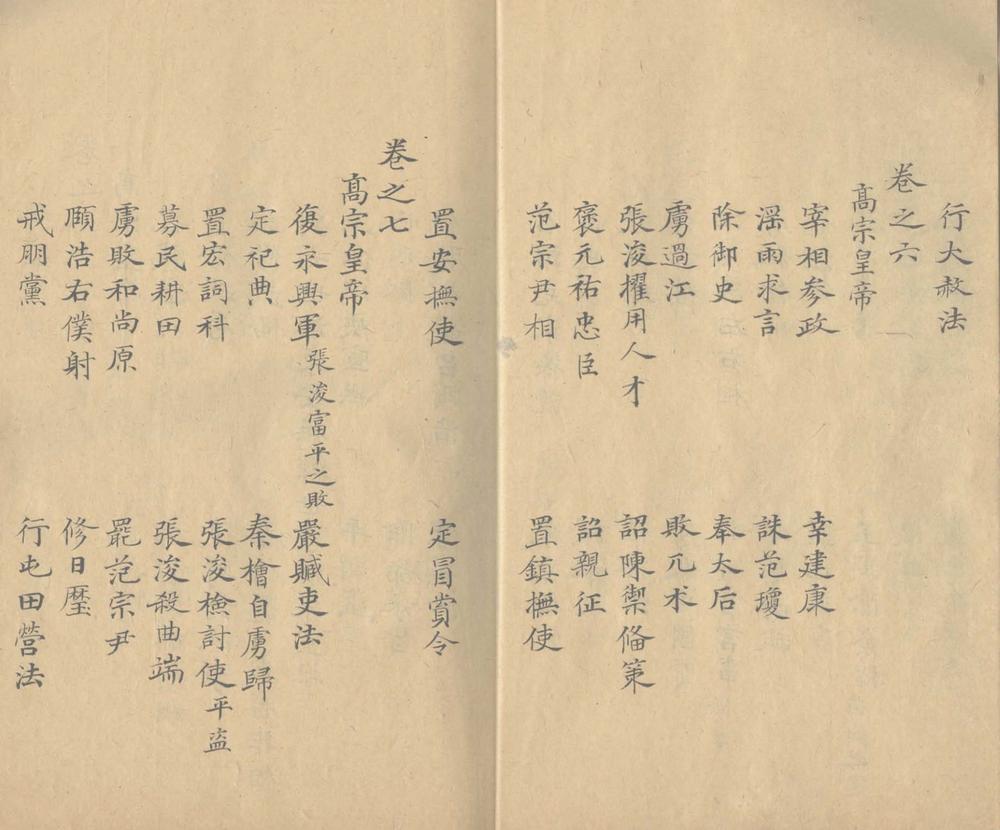 行大赦法
卷之六
高宗皇帝
宰相參政 幸建康
滛雨求言 誅范瓊
除御史 奉太后
虜過江 敗兀术
張浚擢用人才 詔陳禦俻策
褒元祐忠臣 詔親征
范宗尹相 置鎮撫使
置安撫使 定冒賞令
卷之七
髙宗皇帝
復永興軍張浚富平之敗 嚴贓吏法
定祀典 秦檜自虜歸
置宏詞科 張浚檢討使平盗
募民耕田 張浚殺曲端
虜敗和尚原 罷范宗尹
頤浩右僕射 修日歷
戒朋黨 行屯田營法